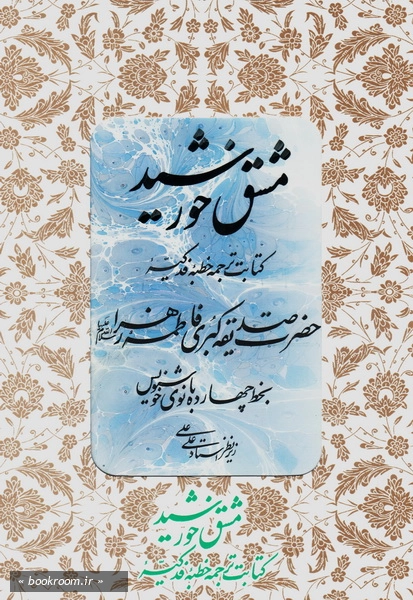 مشق خورشید
کتابت ترجمه خطبه فدکیه
حضرت صدیقه کبری فاطمه زهرا سلام‌الله‌علیها
بخط چهارده بانوی خوشنویس
زیر نظر استاد علی
مشق خورشید
کتابت ترجمه خطبه فدکیه
« bookroom.ir »